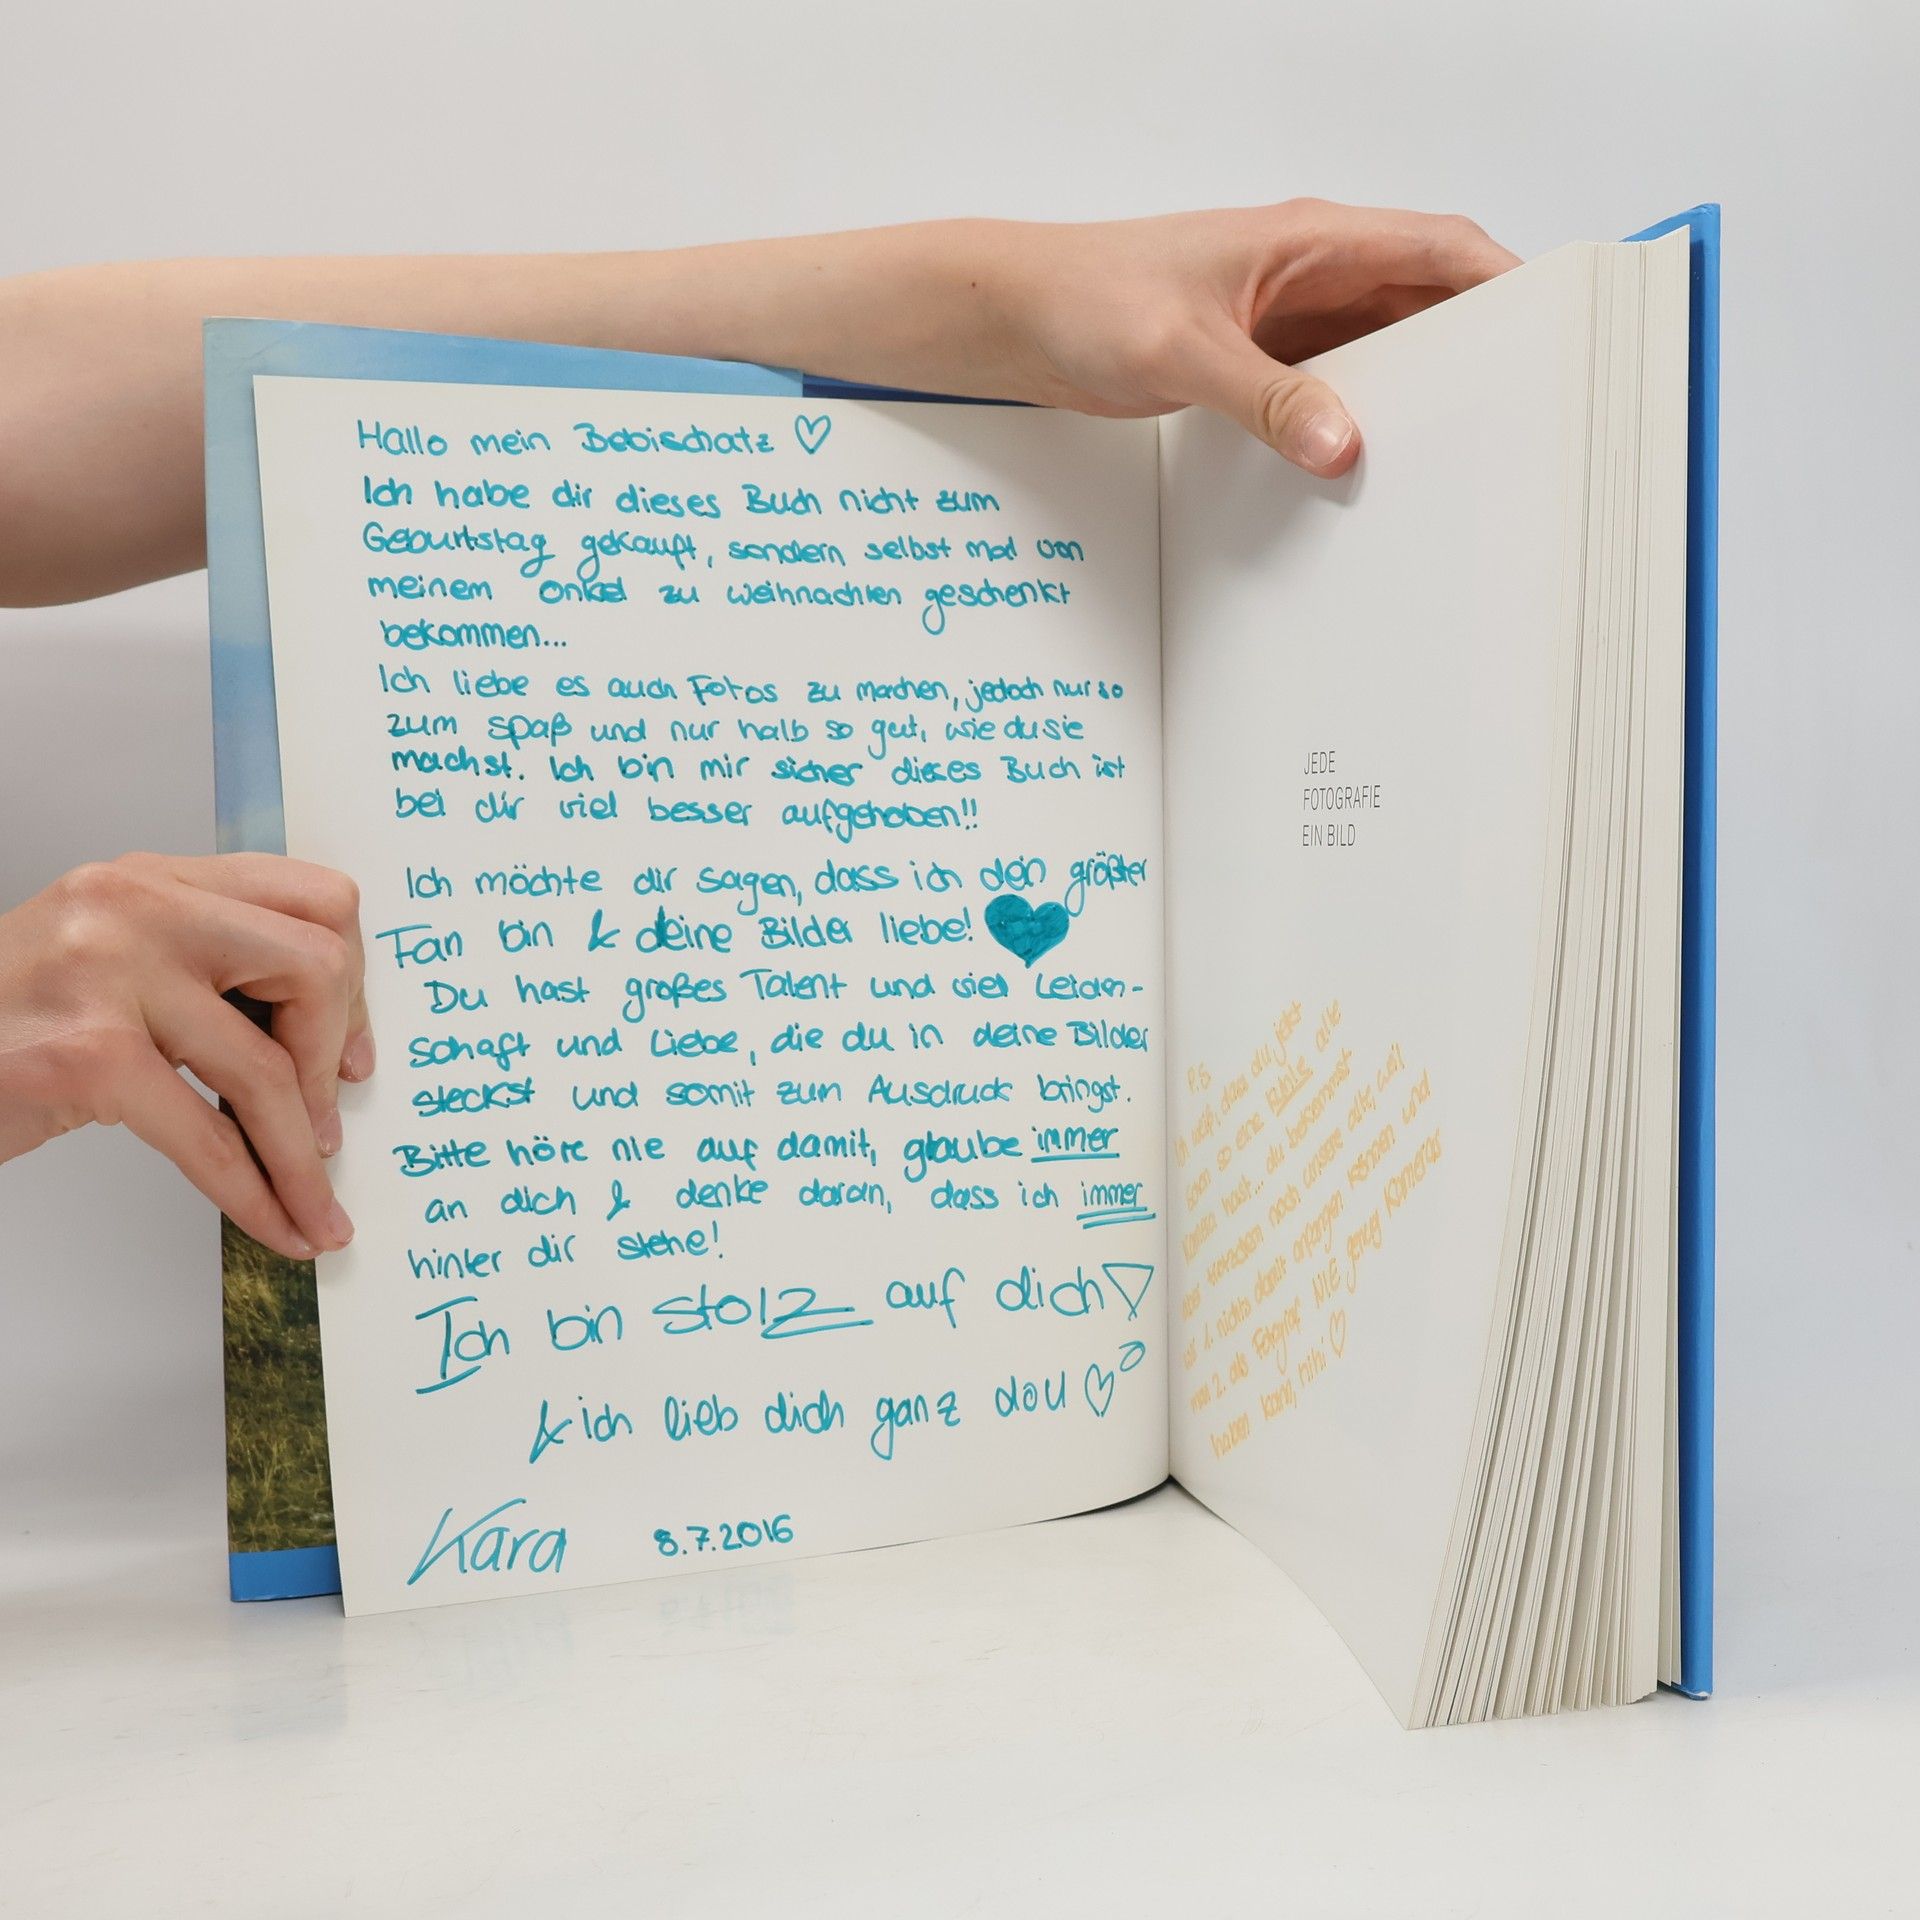 Hallo mein Babischatz ♡
Ich habe dir dieses Buch nicht zum
Geburtstag gekauft, sondern selbst mal von
meinem Onkel zu Weihnachten geschenkt
bekommen...
Ich liebe es auch Fotos zu machen, jedoch nur so
zum Spaß und nur halb so gut, wie du sie
machst. Ich bin mir sicher dieses Buch ist
bei dir viel besser aufgehoben!!
Ich möchte dir sagen, dass ich dein größter
Fan bin & deine Bilder liebe! ♥
Du hast großes Talent und viel Leiden-
schaft und Liebe, die du in deine Bilder
steckst und somit zum Ausdruck bringst.
Bitte höre nie auf damit, glaube immer
an dich & denke daran, dass ich immer
hinter dir stehe!
Ich bin stolz auf dich!
& ich lieb dich ganz doll ♡
Kara 8.7.2016
JEDE
FOTOGRAFIE
EIN BILD
P.S.
Ich weiß, dass du jetzt
schon so eine coole alte
Kamera hast... du bekommst
aber trotzdem noch unsere alte, weil
wir 1. nichts damit anfangen können und
man 2. als Fotograf NIE genug Kameras
haben kann, hihi ♡